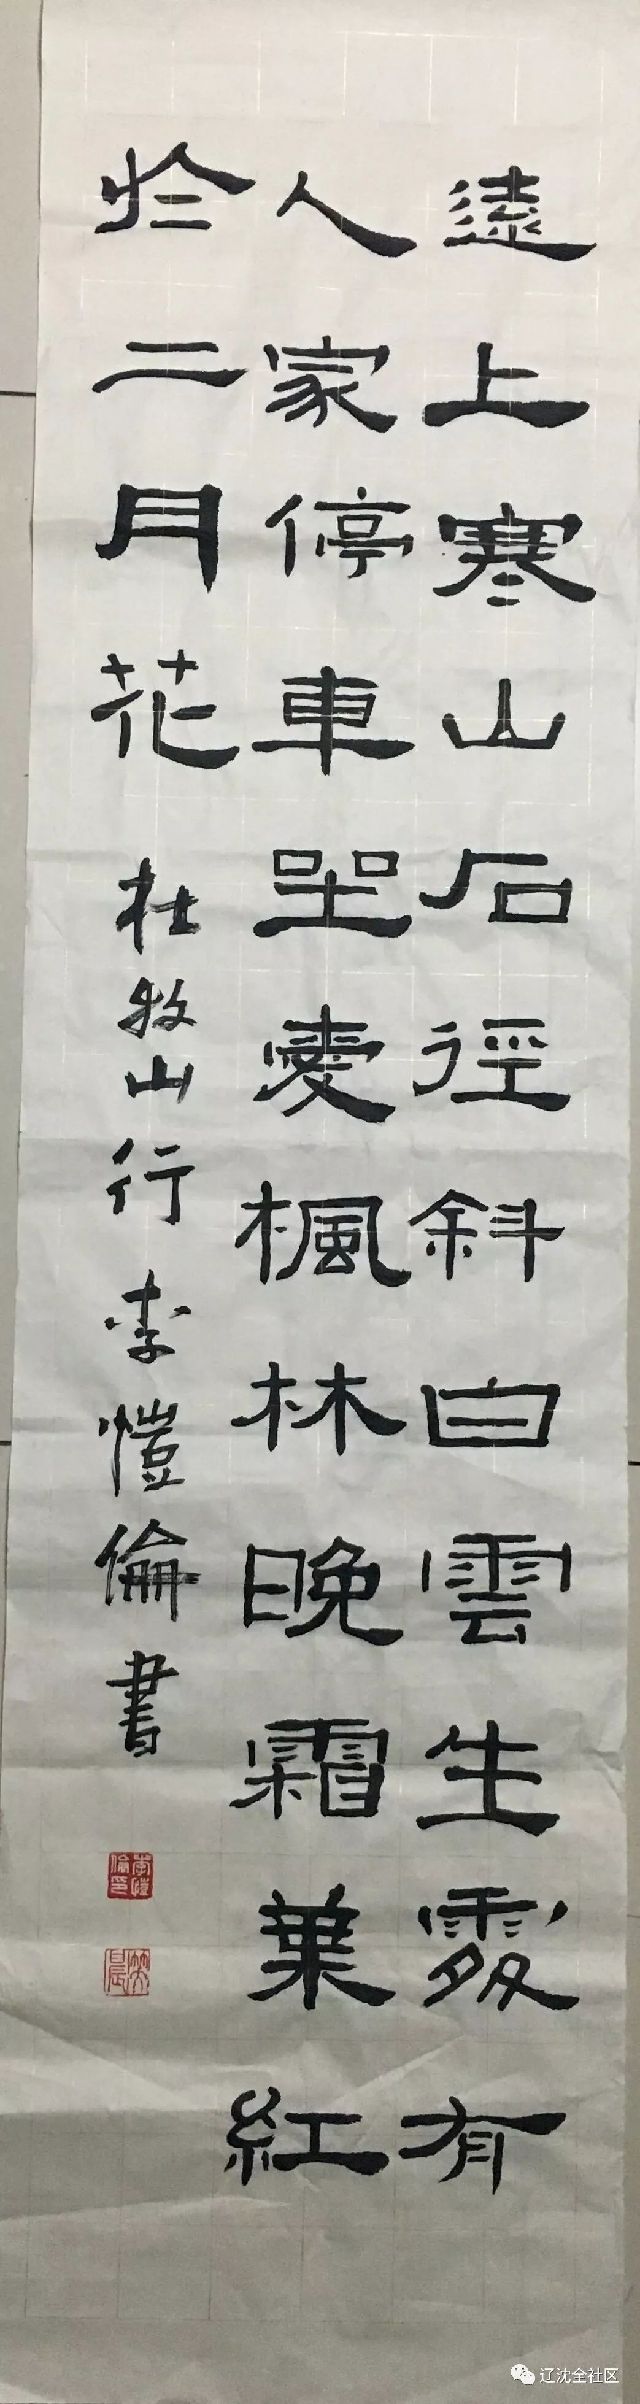 遠上寒山石徑斜白雲生處有
人家停車坐愛楓林晚霜葉紅
於二月花
杜牧山行 李愷倫書
李愷倫印
辽沈全社区